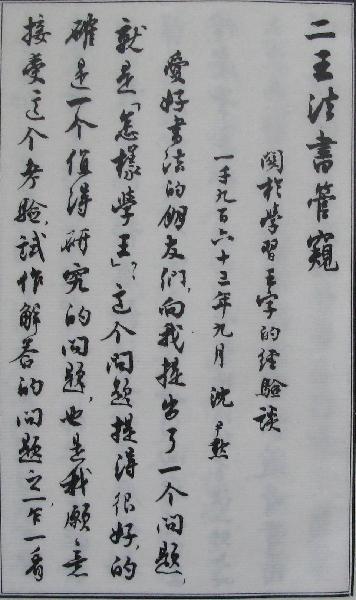 二王法書管窺
関於學習王字的經驗談
一千九百六十三年九月 沈尹默
愛好書法的朋友們,向我提出了一个問題,
就是「怎樣學王」?这个問題提得很好,的
確是一个值得研究的問題,也是我願意
接受这个考驗,試作解答的問題之一,乍一看